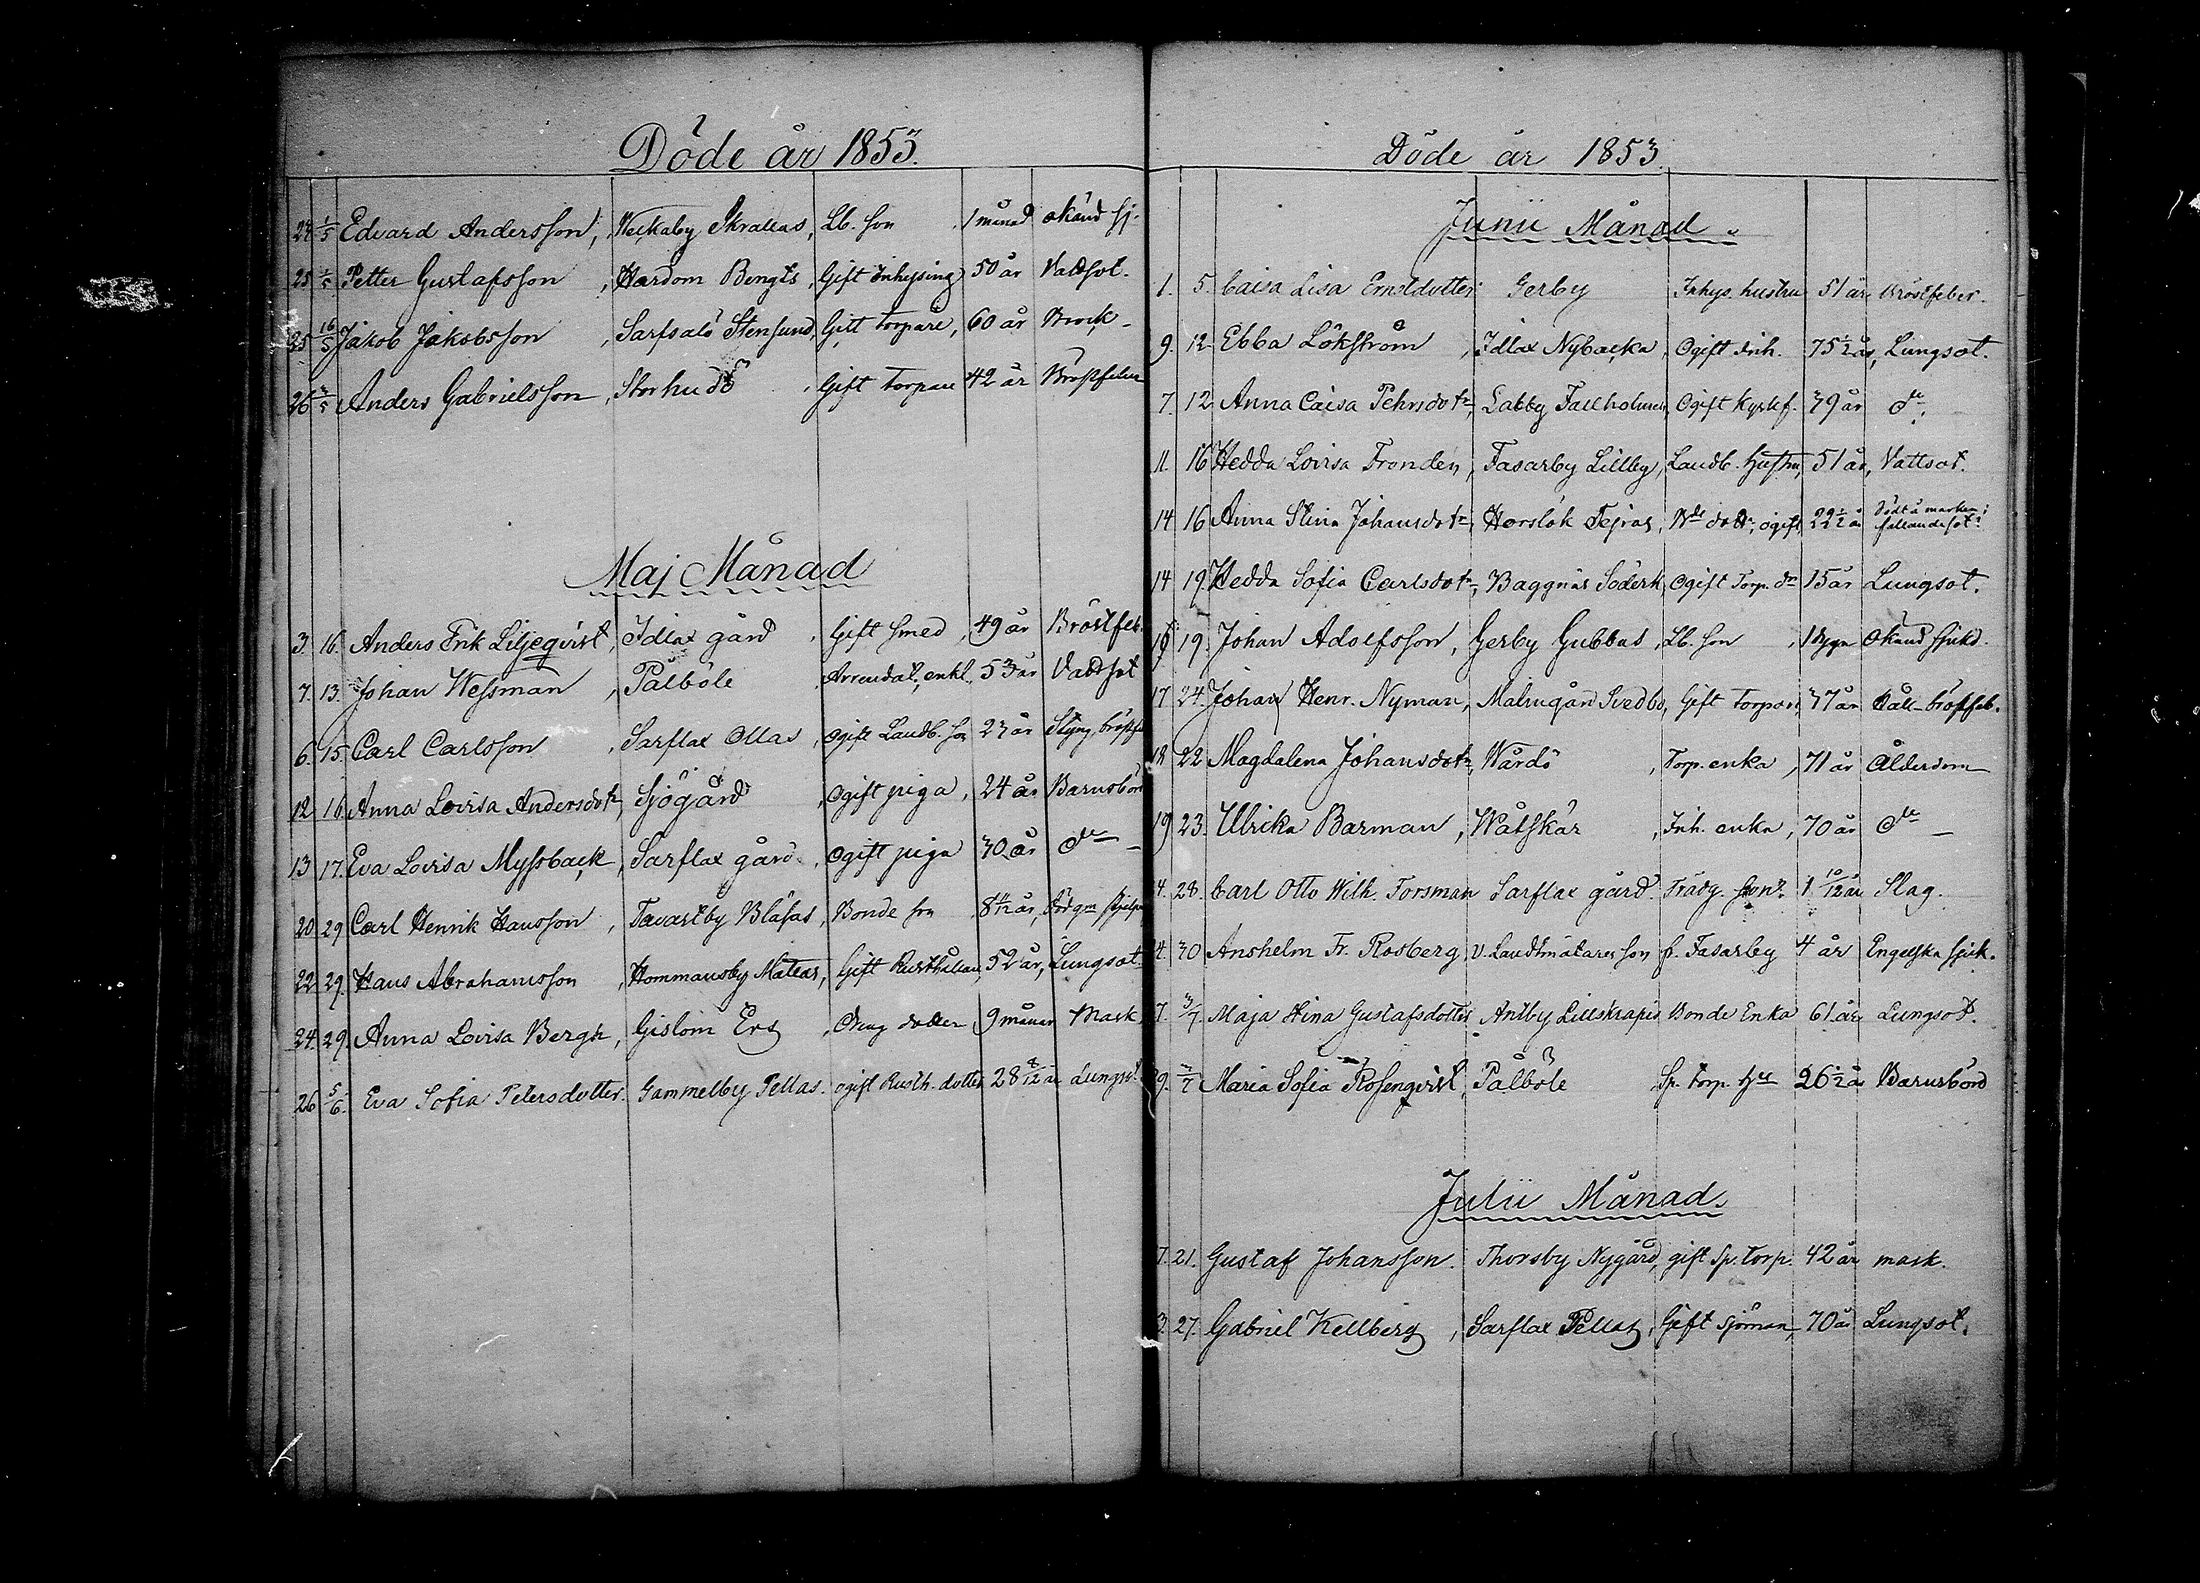 Döde år 1853.
24 1/5 Edvard Andersson, Weckaby Skrallas, Lb. son, 1 månad okänd sj.
25 1/5 Petter Gustafsson, Hardom Bengts, Gift Inhysing 50 år Vattsot.
25 16/5 Jakob Jakobsson, Sarfsalö Stensund, Gift Torpare, 60 år Brock
26 3/5 Anders Gabrielsson, Storhudö, Gift Torpare 42 år Bröstfeber
Maj Månad
3. 16. Anders Erik Liljeqvist, Idlax gård, Gift smed, 49 år Bröstfeb.
7. 13. Johan Wessman, Pålböle, Arrendat. enkl. 53 år Vattsot
6. 15. Carl Carlsson, Sarflax Ollas, ogift Landb. son 23 år Styng bröstfe
12 16. Anna Lovisa Andersdotr, Sjögård, ogift piga, 24 år Barnsbörd
13 17. Eva Lovisa Myssback, Sarflax gård, ogift piga 30 år do
20 29 Carl Henrik Hansson, Tavastby Blåsas, Bonde son, 8 1/12 år,
22 29. Hans Abrahamsson, Hommansby Matias, Gift Rusthållare, 52 år, Lungsot
24. 29. Anna Lovisa Bergh, Gislom Ers, Dreng dotter, 9 månar Mask
26 5/6. Eva Sofia Petersdotter. Gammelby Pellas. ogift Rusth. dotter 28 8/12 år Lungsot
Döde år 1853.
Junii Månad.
1. 5. Caisa Lisa Ernstdotter Gerby Inhys. hustru 51 år Bröstfeber.
9. 12 Ebba Lökström, Idlax Nybacka, Ogift Inh. 75 1/2 år, Lungsot.
7. 12 Anna Caisa Pehrsdotr, Labby Fallholmen, Ogift Kyrkf. 39 år do.
11. 16 Hedda Lovisa Fronden, Fasarby Lillby, Landb. Hustru, 51 år, Vattsot.
14 16 Anna Stina Johansdotr, Horslök Tejras, Bde dottr, ogift, 22 1/2 år Död å marken i fallandesot.
14 19. Hedda Sofia Carlsdotr, Baggnäs Söderk. Ogift Torp. dr 15 år Lungsot.
16 19. Johan Adolfsson, Gerby Gubbas, Lb. son, 1 dygn Okänd sjukd.
17 24. Johan Henr. Nyman, Malmgård Svedbo, Gift Torpare, 37 år Håll-bröstfeb.
18 22 Magdalena Johansdotr, Wårdö, Torp. enka, 71 år Ålderdom
19 23. Ulrika Barman, Wåtskär, Inh. enka, 70 år do
4. 28. Carl Otto Wilh. Forsman Sarflax gård. Trädg. son. 1 10/12 år Slag.
4. 30 Anshelm Fr. Rosberg V. Landtmätares son fr. Fasarby 4 år Engelska sjuk.
7. 3/7 Maja Stina Gustafsdotter Antby Lillskrapis Bonde Enka 61 år Lungsot.
9. 3/7 Maria Sofia Rosenqvist, Pålböle Sp. torp. Hu 26 1/2 år Barnsbörd
Julii Månad.
7. 21. Gustaf Johansson. Thorsby Nygård, gift Sp. torp. 42 år mask.
3. 27. Gabriel Kellberg, Sarflax Pellas, Gift sjöman, 70 år Lungsot.